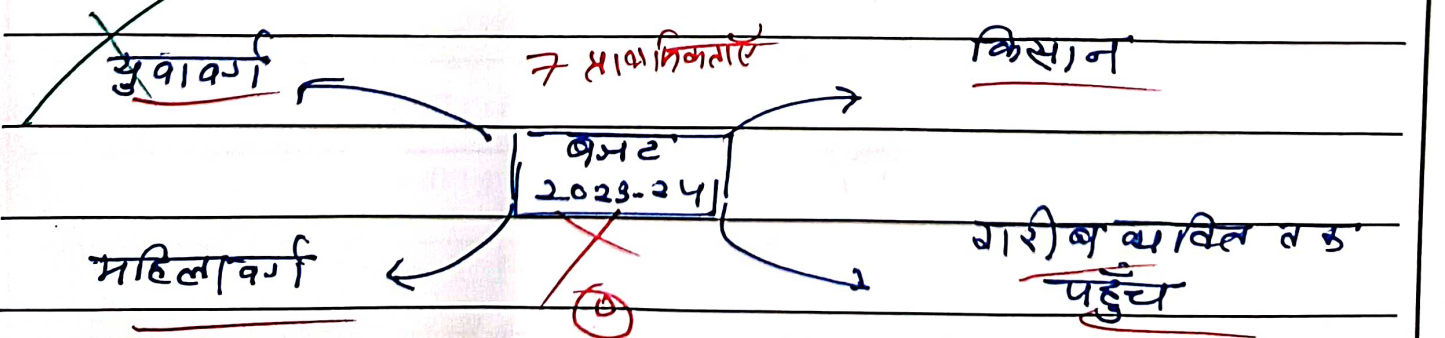 युवावर्ग
7 प्राथमिकताएँ
किसान
बजट
2023-24
महिलावर्ग
गरीब व्यक्ति तक
पहुँच
0